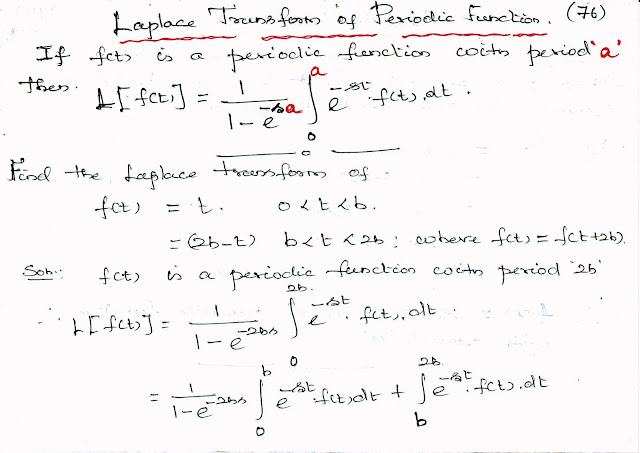 Laplace Transform of Periodic Function. (76)
If f(t) is a periodic function with period 'a'
then. L[f(t)] = 1/(1-e^{-sa}) ∫_0^a e^{-st}.f(t).dt.
Find the Laplace transform of.
f(t) = t. 0<t<b.
= (2b-t) b<t<2b; where f(t)=f(t+2b).
Soln: f(t) is a periodic function with period '2b'
∴ L[f(t)] = 1/(1-e^{-2bs}) ∫_0^{2b.} e^{-st}. f(t).dt.
= 1/(1-e^{-2bs}) ∫_0^b e^{-st}.f(t)dt + ∫_b^{2b.} e^{-st}.f(t).dt